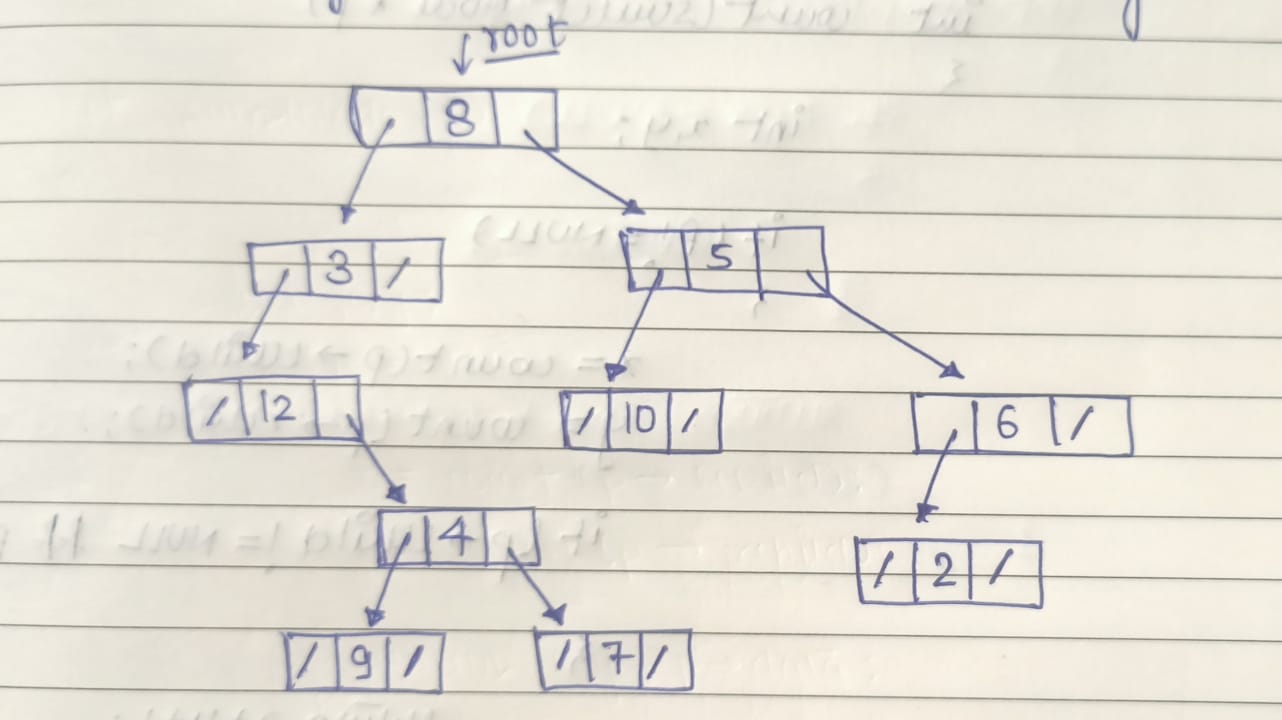 root
8
3 /
5
/ 12
/ 10 /
6 /
4
/ 2 /
/ 9 /
/ 7 /